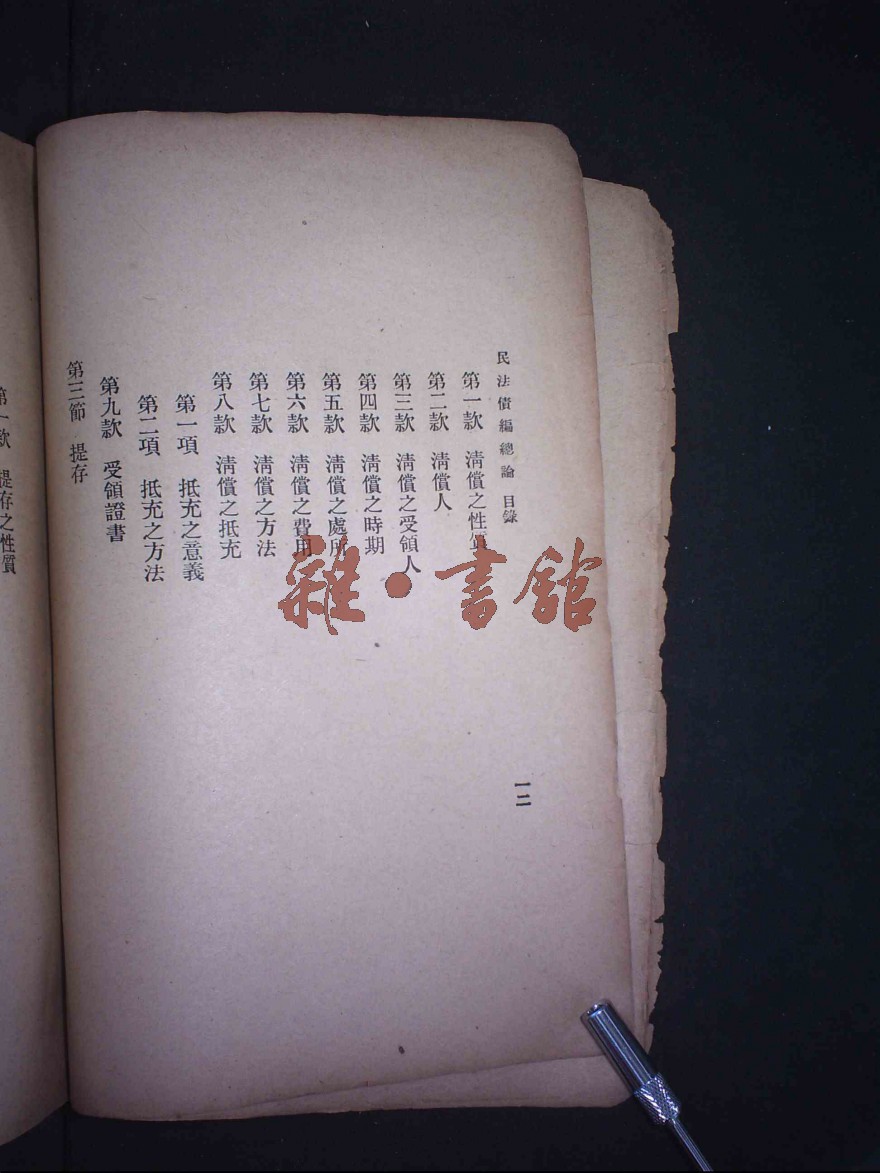 民法債編總論 目錄
一二
第一款 淸償之性質
第二款 淸償人
第三款 淸償之受領人
第四款 淸償之時期
第五款 淸償之處所
第六款 淸償之費用
第七款 淸償之方法
第八款 淸償之抵充
第一項 抵充之意義
第二項 抵充之方法
第九款 受領證書
第三節 提存
第一款 提存之性質
雜·書館